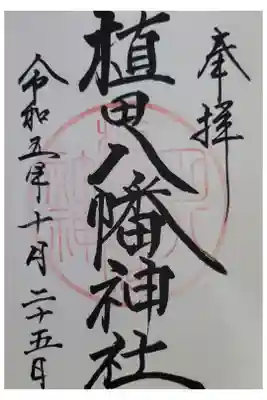 奉拝
植田八幡神社
令和五年十月二十五日